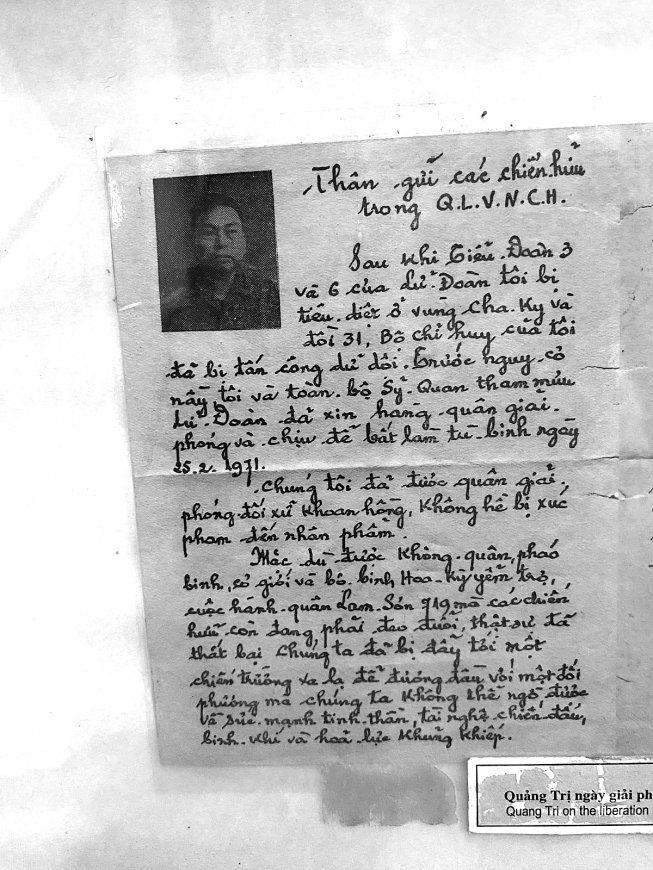 Thân gửi các chiến hữu
trong Q.L.V.N.C.H.
Sau khi Tiểu-Đoàn 3
và 6 của Lử-Đoàn tôi bị
tiêu-diệt ở vùng Cha-Ky và
đồi 31, Bộ chỉ huy của tôi
đả bị tấn công dử dội. Trước nguy-cơ
nầy, tôi và toàn-bộ Sỹ-Quan tham mưu
Lử-Đoàn đả xin hàng quân giải-
phóng và chịu để bắt làm tù-binh ngày
25.2.1971.
Chúng tôi đả được quân giải-
phóng đối xử khoan hồng, không hề bị xúc
phạm đến nhân phẩm.
Mặc dù được không-quân, pháo
binh, cơ giới và bộ-binh, Hoa-Kỳ yểm trợ,
cuộc hành-quân Lam-Sơn 719 mà các chiến
hửu còn đang phải đeo đuổi, thật sự đả
thất bại. Chúng ta đả bị đẩy tới một
chiến trường xa lạ để đương đầu với một đối
phương mà chúng ta không thể ngờ được
về sức mạnh tinh-thần, tài nghệ chiến đấu,
binh-khí và hoả lực khủng khiếp.
Quảng Trị ngày giải ph
Quang Tri on the liberation